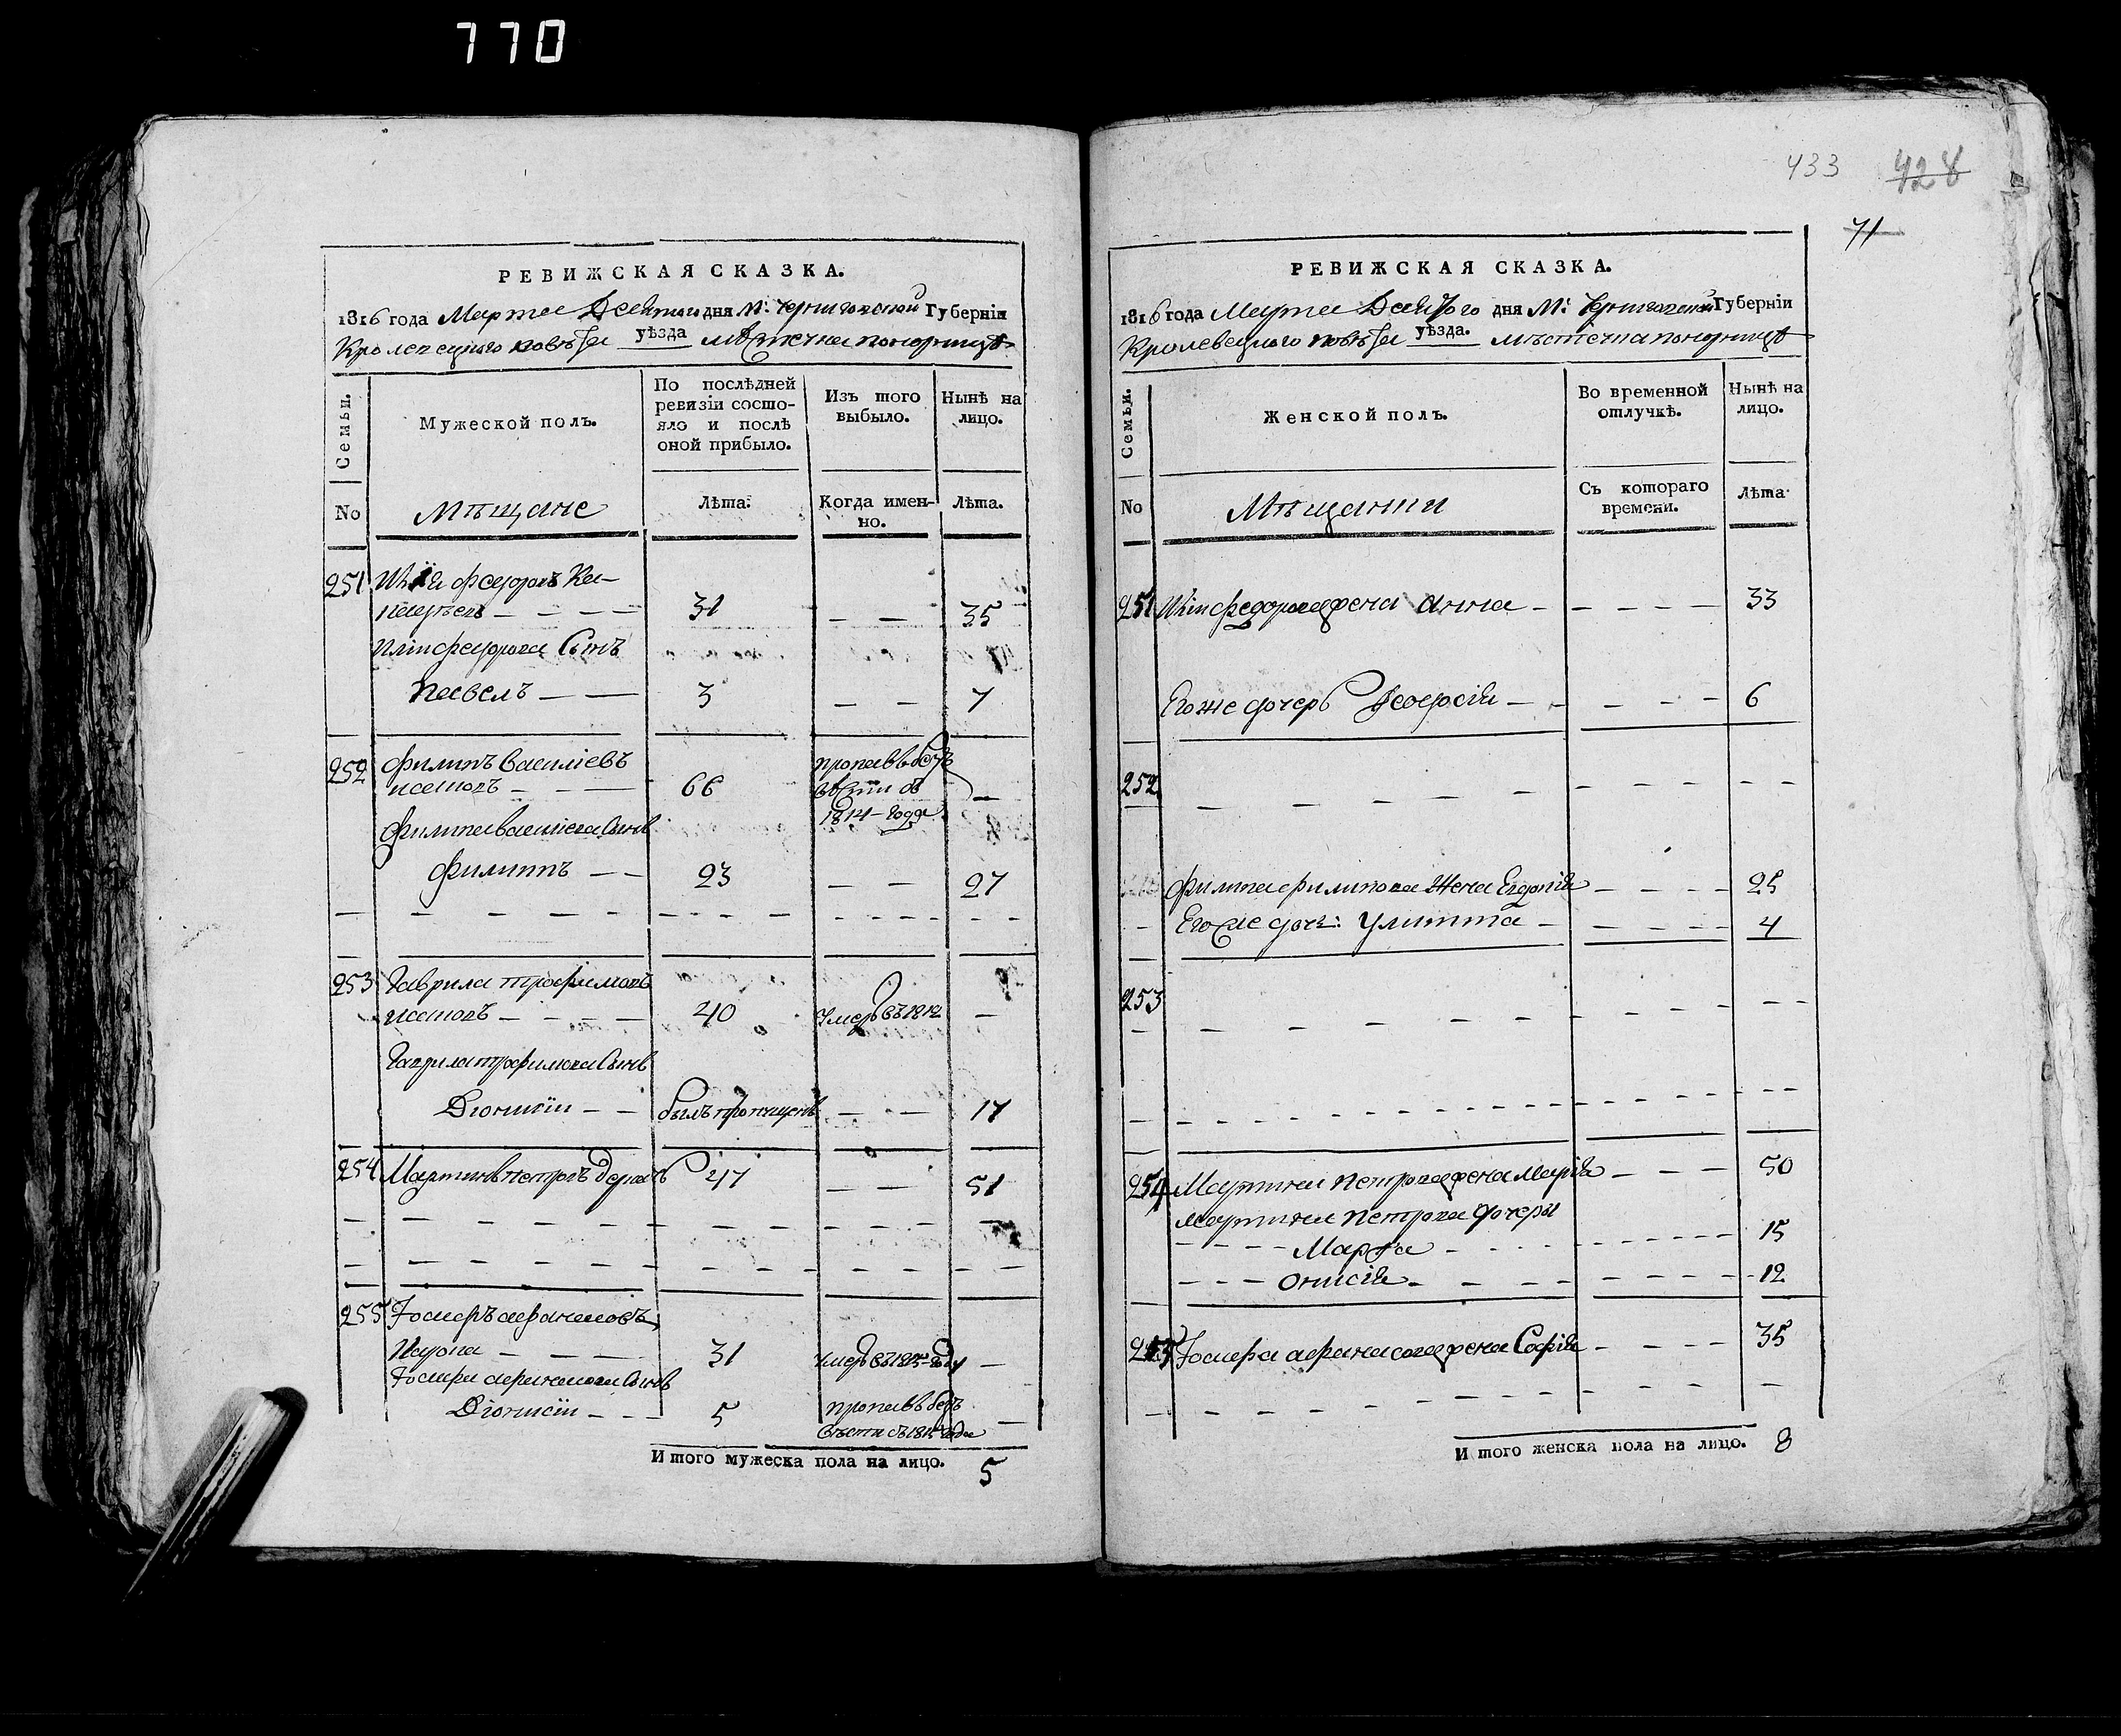 770
РЕВИЖСКАЯ СКАЗКА.
1816 года Марта Девятого дня М: Черниговской Губерніи
Кролевецкого повѣта уѣзда мѣстечка понорницѣ
Семьи.
Мужеской полъ.
По послѣдней ревизіи состояло и послѣ оной прибыло.
Изъ того выбыло.
Нынѣ на лицо.
No
Мѣщане
Лѣта.
Когда именно.
Лѣта.
251 федоръ
31 — — 35
федорова Сынъ
павелъ — — 3 — — 7
252 филипъ василіевъ
— — — 66
пропавъ безъ вѣсти въ 1814 года —
филипа василіева Сынъ
филиппъ — — 23 — — 27
253 Гаврила трофимовъ
— — — — 40 Умеръ въ 1812 —
Гаврила трофимова Сынъ
Діонисіи — — былъ пропущенъ — — 17
254 Мартинъ петровъ 47 — — 51
255 Іосифъ афанасовъ
— — — 31 Умеръ въ 1815 году —
Іосифа афанасова Сынъ
Діонисіи — — — 5 пропавъ безъ
вѣсти въ 1812 года —
Итого мужеска пола на лицо. 5
433 428
71
РЕВИЖСКАЯ СКАЗКА.
1816 года Марта Девятого дня М: Черниговской Губерніи
Кролевецкого повѣта уѣзда. мѣстечка понорницѣ
Семьи.
Женской полъ.
Во временной отлучкѣ.
Нынѣ на лицо.
No
Мѣщанки
Съ котораго времени.
Лѣта.
251 федорова жена анна — — — — — 33
Егоже дочеръ — — — — — 6
252 — — — — — — — — —
филипа филипова жена Евдокія — — — — 25
Егоже доч: Улитта — — — — — 4
253 — — — — — — — — —
254 Мартина петрова жена Марія — — — 50
Мартина петрова дочеры
— — — — Марфа — — — — 15
— — — онисія — — — — — 12
255 Іосифа афанасова жена Софія — — — — 35
Итого женска пола на лицо. 8